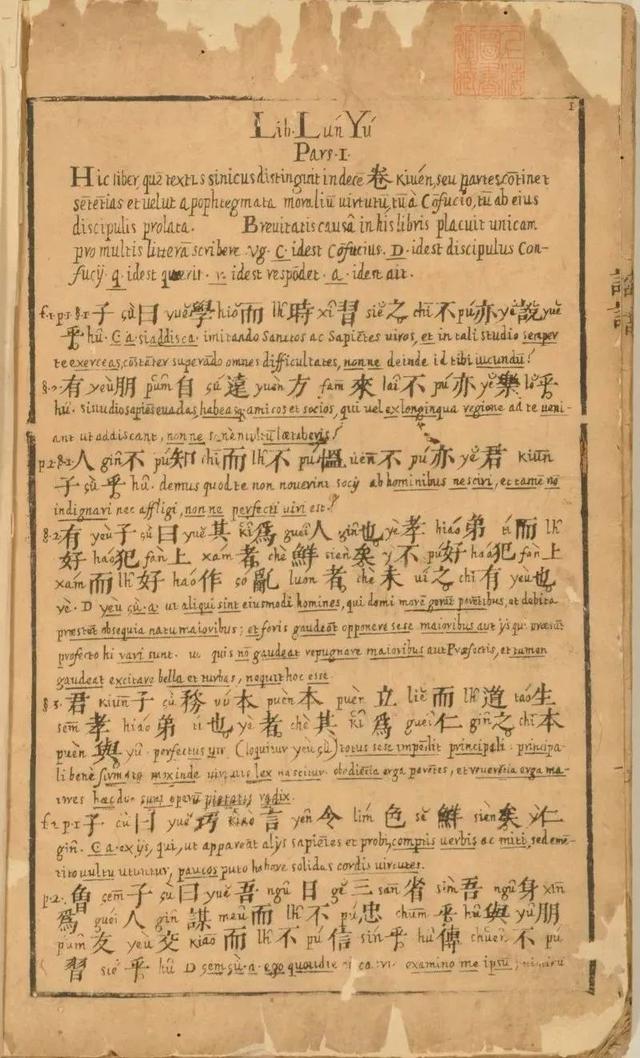 1
Lib. Lún Yú
Pars. I.
Hic liber, quē textus sinicus distinguit in decē 卷 kiuén, seu partes, cōtinet
sētētias et velut apophtegmata moraliū virtutū, tū à Cōfucio, tū ab eius
discipulis prolata. Brevitatis causâ in his libris placuit unicam
pro multis litterā scribere. Vg. C. idest Cōfucius. D. idest discipulus Con-
fucÿ. q. idest quærit. r. idest respōdet. a. idest ait.
f.1. p.1. §.1. 子 çù 曰 yuĕ 學 hiŏ 而 lh 時 xî 習 siĕ 之 chī 不 pú 亦 yĕ 說 yuĕ
乎 hû. C. a. si addisca. imitando Sanctos ac Sapiētes viros, et in tali studio semper
te exerceas, cōstāter superādo omnes difficultates, nonne deinde id tibi iucundū!
§.2. 有 yeù 朋 pûm 自 çú 遠 yuèn 方 fam 來 laî 不 pú 亦 yĕ 樂 lŏ 乎
hû. si studio sapiēs evadas, habeasq. amicos et socios, qui vel ex longinqua regione ad te veni-
ant ut addiscant, nonne
p.2. §.1. 人 gîn 不 pú 知 chī 而 lh 不 pú 慍 úen 不 pú 亦 yĕ 君 kiūn
子 çù 乎 hû. demus quod te non noverint socÿ ab hominibus nesciri, et tamē nō
indignari nec affligi, nonne perfecti viri est?
§.2. 有 yeù 子 çù 曰 yuĕ 其 kî 爲 gueî 人 gîn 也 yè 孝 hiáo 弟 tí 而 lh
好 háo 犯 fán 上 xám 者 chè 鮮 sièn 矣 y 不 pú 好 háo 犯 fán 上
xám 而 lh 好 háo 作 çŏ 亂 luón 者 chè 未 ví 之 chī 有 yeù 也
yè. D yeù çù. a. ut aliqui sint eiusmodi homines, qui domi morē gerāt parētibus, et debita
præstēt obsequia natu maioribus; et foris gaudeāt opponere sese maioribus aut ÿs qui præsūt
profecto hi rari sunt. quis nō gaudeat repugnare maioribus aut Præfectis, et tamen
gaudeat excitare bella et turbas, nequit hoc esse.
§.3. 君 kiūn 子 çù 務 vú 本 puèn 本 puèn 立 liĕ 而 lh 道 taó 生
sem 孝 hiáo 弟 tí 也 yè 者 chè 其 kî 爲 gueî 仁 gîn 之 chī 本
puèn 與 yû. perfectus vir (loquitur yeù çù) totus sese impēdit principali. principa-
li benè firmato mox inde virtutis lex nascitur. obediētia erga parētes, et reverētia erga ma-
iores hæc duo sunt operū pietatis radix.
f.2. p.1. 子 çù 曰 yuĕ 巧 kiào 言 yên 令 lím 色 sĕ 鮮 sièn 矣 仁
gîn. C. a. ex ÿs, qui, ut appareāt alÿs sapiētes et probi, comptis verbis ac miti, sed emē-
tito vultu utuntur, paucos puto habere solidas cordis virtutes.
p.2. 曾 çem 子 çù 曰 yuĕ 吾 ngû 日 gĕ 三 san 省 sìm 吾 ngû 身 xin
爲 guéi 人 gîn 謀 meû 而 lh 不 pú 忠 chum 乎 hû 與 yù 朋
pûm 友 yeù 交 kiāo 而 lh 不 pú 信 sín 乎 hû 傳 chuen 不 pú
習 siĕ 乎 hû D çem çù. a. ego quotidie examino me ipsū